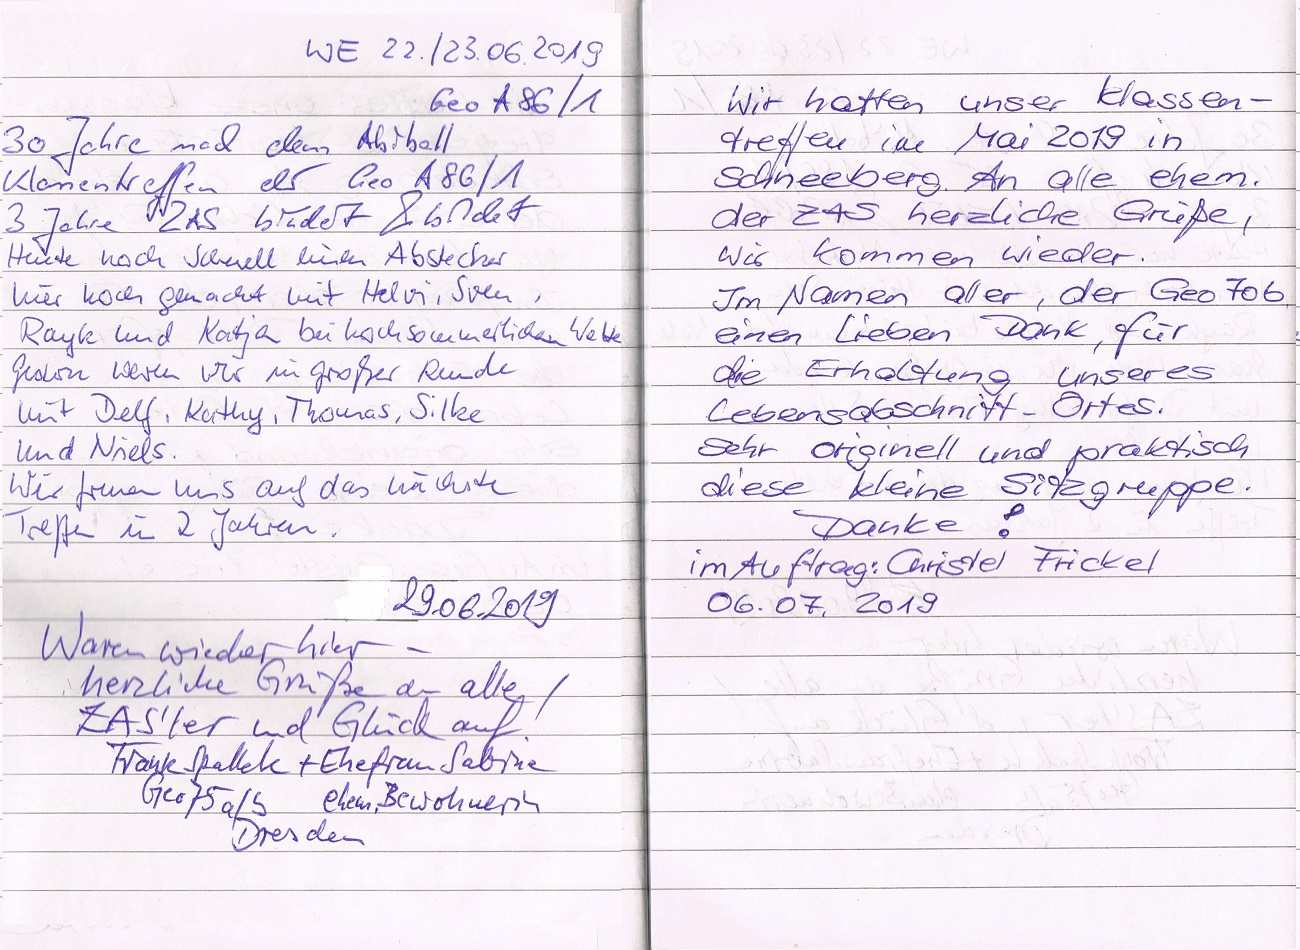 WE 22./23.06.2019
Geo A86/1
30 Jahre nach dem Abiball
Klassentreffen der Geo A86/1
3 Jahre ZAS bildet &
Heute noch schnell einen Abstecher
hier hoch gemacht mit Helvi, Sven,
Rayk und Katja bei hochsommerlichem Wetter
Gestern waren wir in großer Runde
mit Delf, Kathy, Thomas, Silke
und Niels.
Wir freuen uns auf das nächste
Treffen in 2 Jahren.
29.06.2019
Waren wieder hier –
herzliche Grüße an alle
ZAS'ler und Glück auf!
Frank Spallek + Ehefrau Sabine
Geo75a/b ehem. Bewohnerin
Dresden
Wir hatten unser Klassen-
treffen im Mai 2019 in
Schneeberg. An alle ehem.
der ZAS herzliche Grüße,
wir kommen wieder.
Im Namen aller, der Geo 70b
einen Lieben Dank, für
die Erhaltung unseres
Lebensabschnitt-Ortes.
Sehr originell und praktisch
diese kleine Sitzgruppe.
Danke!
im Auftrag: Christel Frickel
06.07.2019